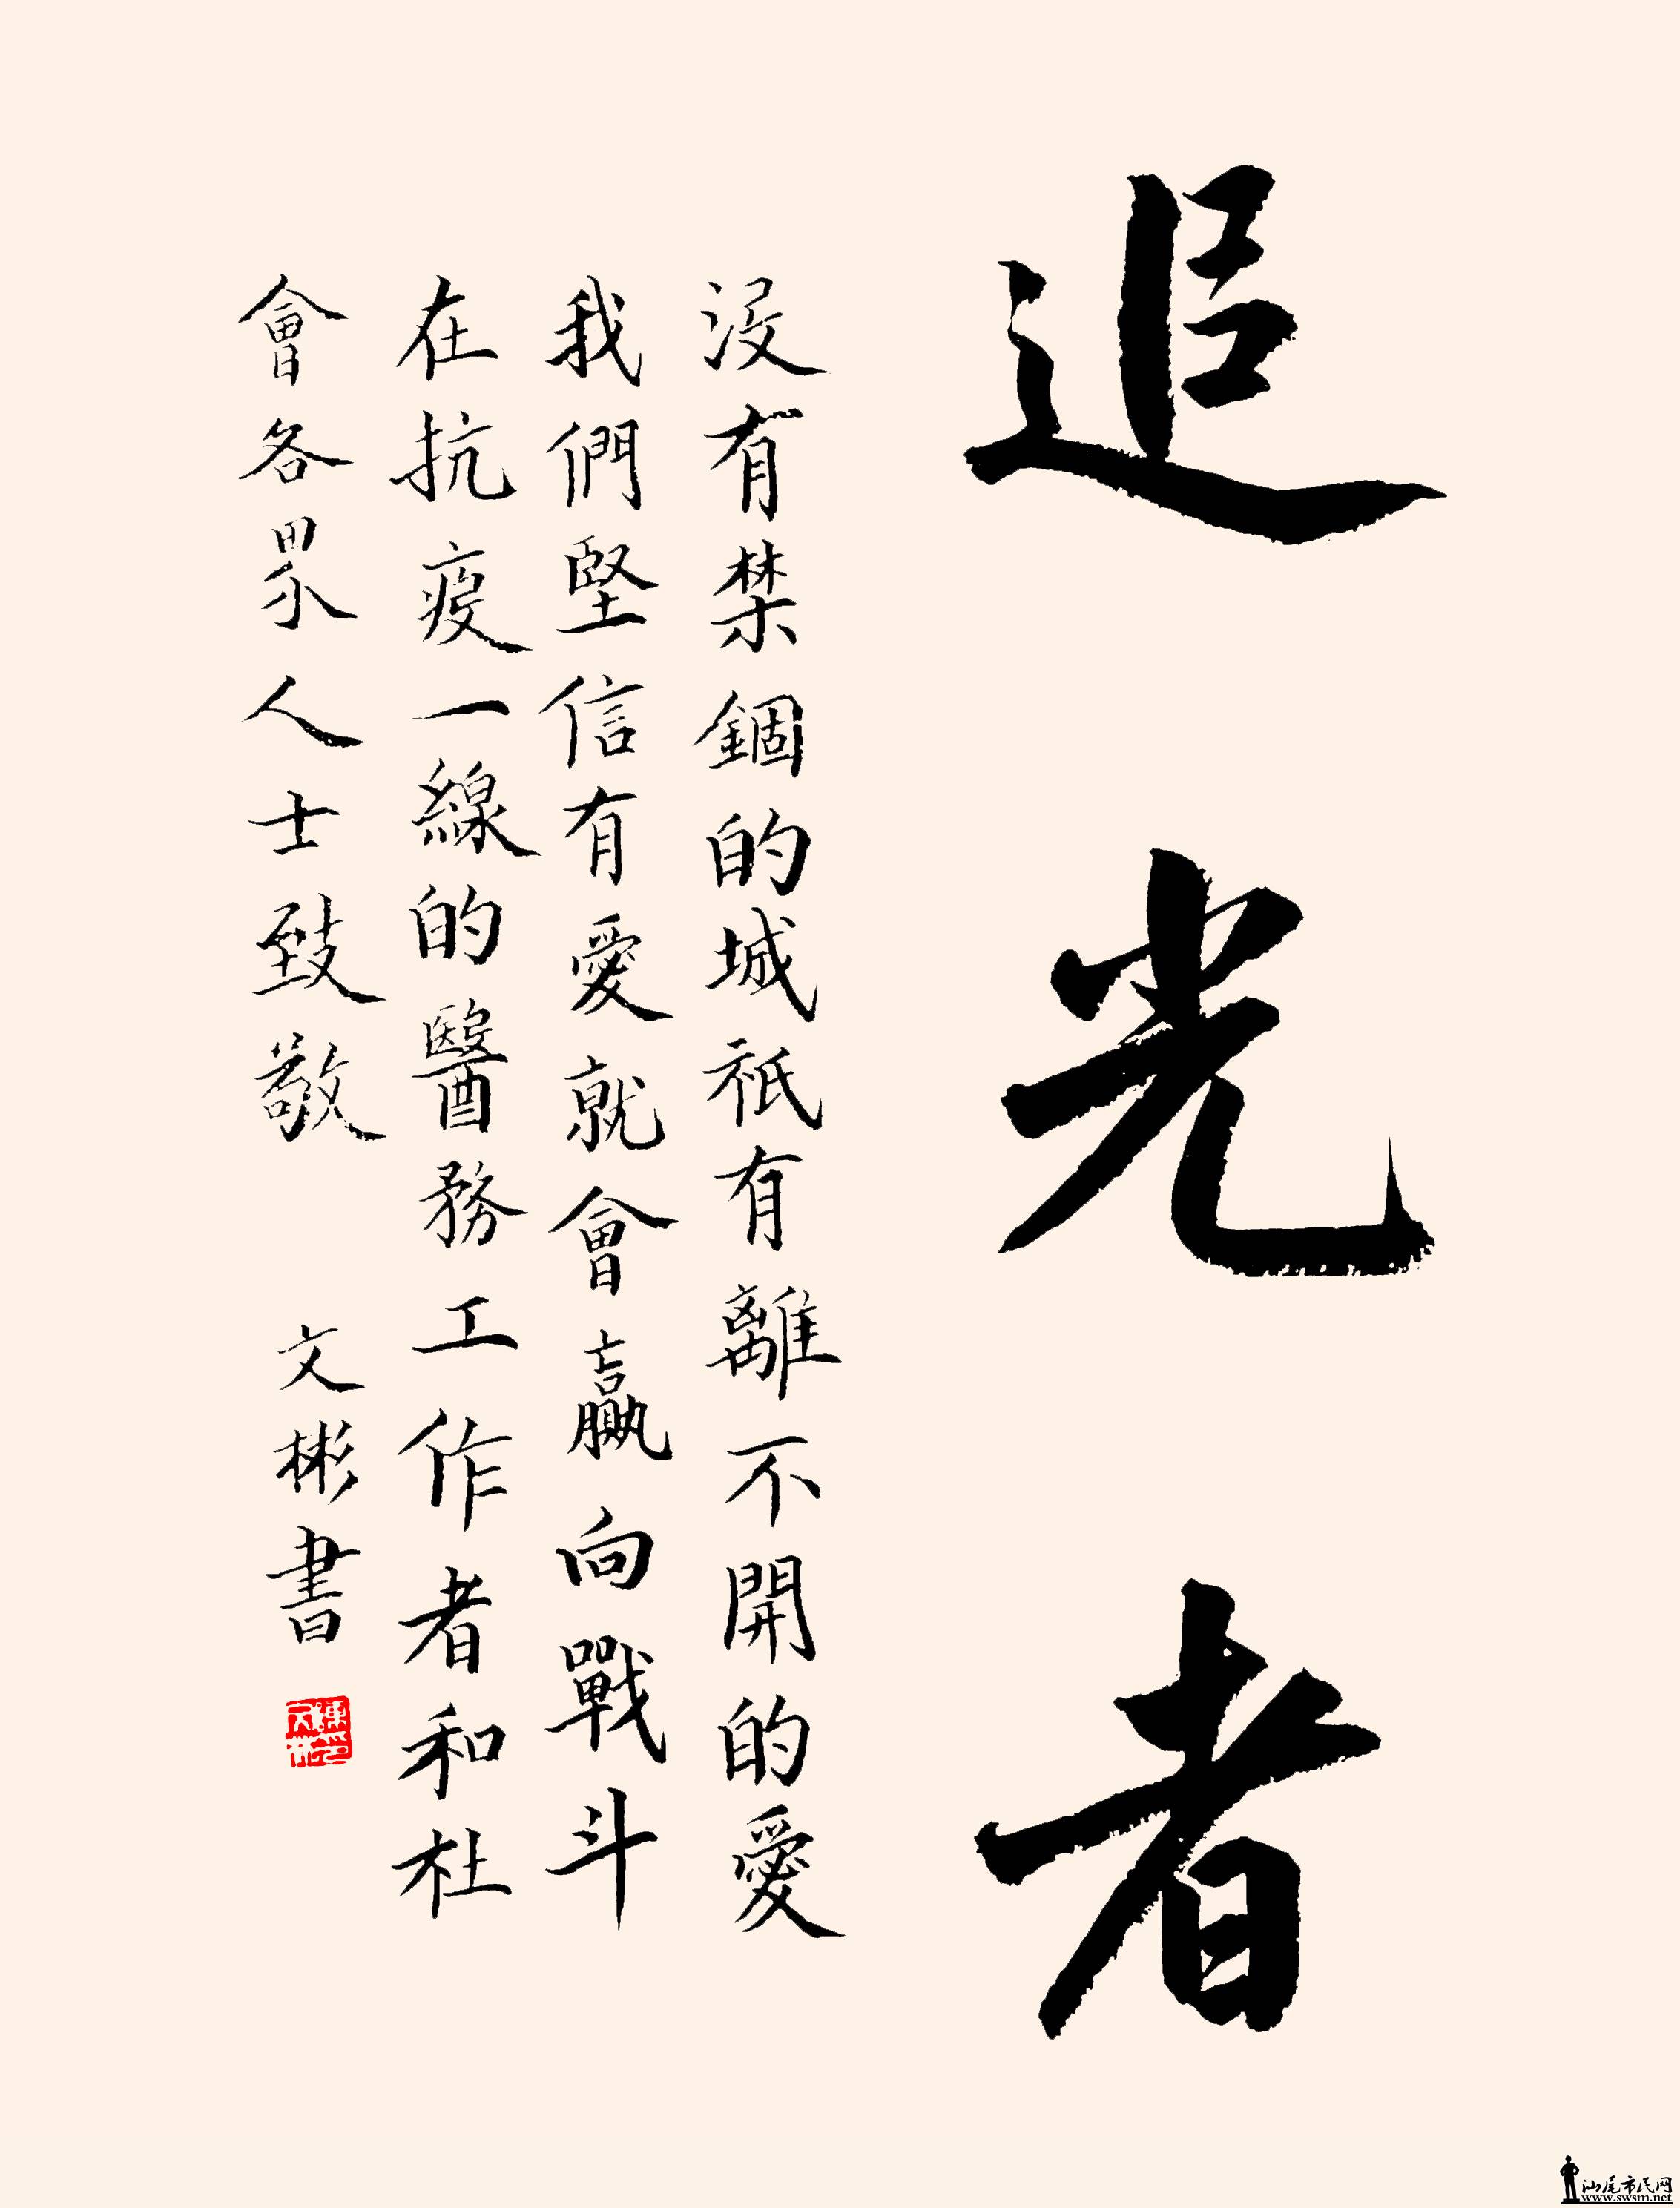 追光者
沒有禁錮的城祇有離不開的愛
我們堅信有愛就會贏向戰斗
在抗疫一線的醫務工作者和社
會各界人士致敬
文彬書
汕尾市民网
www.swsm.net